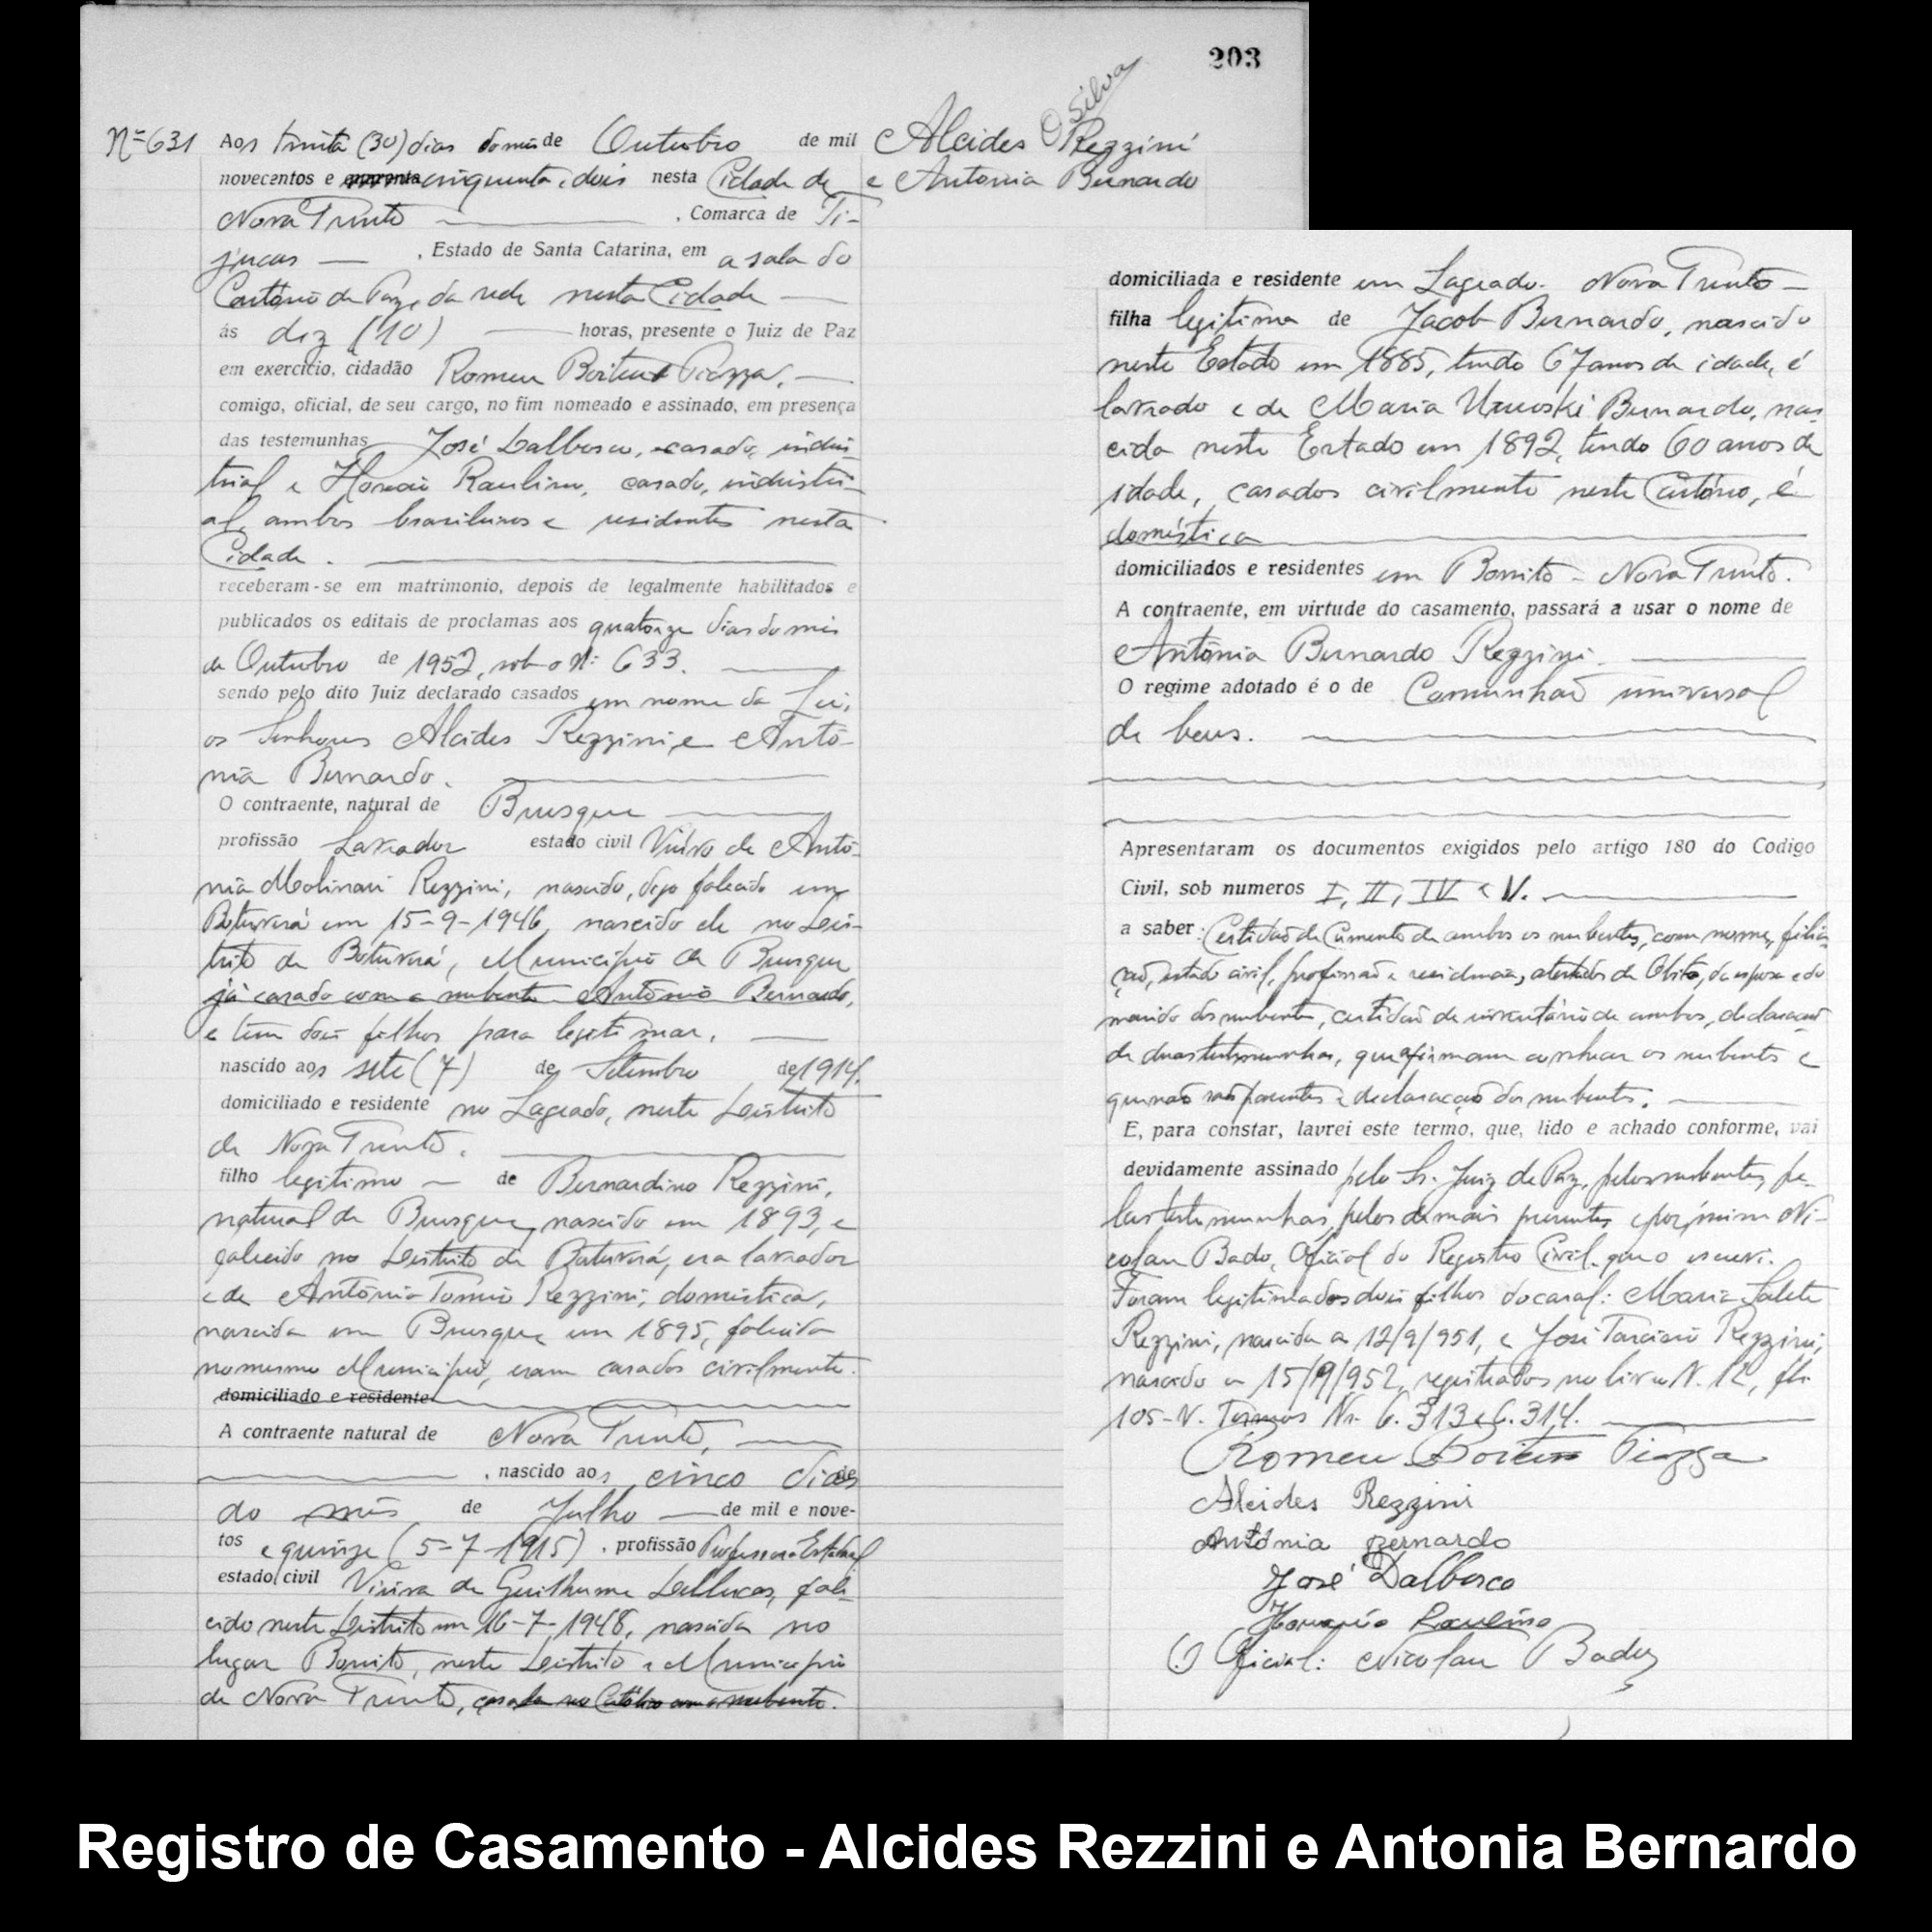 203
O Silva
Nº 631 Aos trinta (30) dias do mês de Outubro de mil
novecentos e quarenta cinquenta e dois nesta Cidade de
Nova Trento , Comarca de Ti-
jucas , Estado de Santa Catarina, em a sala do
Cartório de Paz, da sede nesta Cidade
ás dez (10) horas, presente o Juiz de Paz
em exercicio, cidadão Romeu Boiteux Piazza,
comigo, oficial, de seu cargo, no fim nomeado e assinado, em presença
das testemunhas José Dalbosco, casado, indus-
trial e Horacio Raulino, casado, industri-
al, ambos brasileiros e residentes nesta
Cidade.
receberam-se em matrimonio, depois de legalmente habilitados e
publicados os editais de proclamas aos quatorze dias do mês
de Outubro de 1952, sob o Nº 633.
sendo pelo dito Juiz declarado casados em nome da Lei,
os Senhores Alcides Rezzini, e Antô-
nia Bernardo.
O contraente, natural de Brusque
profissão Lavrador estado civil Viúvo de Antô-
nia Molinari Rezzini, nascido, digo falecido em
Botuverá em 15-9-1946, nascido ele no Dis-
trito de Botuverá, Municipio de Brusque
já casado com a nubente Antônia Bernardo,
e tem dois filhos para legitimar.
nascido aos sete (7) de Setembro de 1914.
domiciliado e residente no Lageado, neste Distrito
de Nova Trento.
filho legitimo de Bernardino Rezzini,
natural de Brusque, nascido em 1893, e
falecido no Distrito de Botuverá, era lavrador
e de Antônia Tomio Rezzini, doméstica,
nascida em Brusque em 1895, falecida
no mesmo Municipio, eram casados civilmente.
domiciliado e residente
A contraente natural de Nova Trento,
, nascido aos cinco dias de
do mês de Julho de mil e nove-
tos e quinze (5-7-1915) , profissão Professora Estadual
estado civil Viúva de Guilherme Dellucas, fale-
cido neste Distrito em 16-7-1948, nascida no
lugar Bonito, neste Distrito e Municipio
de Nova Trento, casada no Católico com o nubente.
Alcides Rezzini
e Antonia Bernardo
domiciliada e residente em Lageado - Nova Trento -
filha legitima de Jacob Bernardo, nascido
neste Estado em 1885, tendo 67 anos de idade, é
lavrado e de Maria Bernardo, nas-
cida neste Estado em 1892, tendo 60 anos de
idade, casados civilmente neste Cartório, é
doméstica
domiciliados e residentes em Bonito - Nova Trento.
A contraente, em virtude do casamento, passará a usar o nome de
Antônia Bernardo Rezzini.
O regime adotado é o de Comunhão universal
de bens.
Apresentaram os documentos exigidos pelo artigo 180 do Codigo
Civil, sob numeros I, II, IV e V.
a saber: Certidão de de ambos os nubentes, com nome, filia-
ção, estado civil, profissão e residencia, atestados de Obito, da esposa e do
marido dos nubentes, certidão de inventário de ambos, declaração
de duas testemunhas, que afirmam conhecer os nubentes e
que não são parentes e declaração dos nubentes.
E, para constar, lavrei este termo, que, lido e achado conforme, vai
devidamente assinado pelo Sr. Juiz de Paz, pelos nubentes, pe-
las testemunhas, pelos demais presentes e por mim Ni-
colau Bado, Oficial do Registro Civil, que o escrevi.
Foram legitimados dois filhos do casal: Maria Salete
Rezzini, nascida a 12/9/951, e José Tarcisio Rezzini,
nascido a 15/9/952, registrados no livro N. 12, fls.
105-V. Termos Nr. 6.313 e 6.314.
Romeu Boiteux Piazza
Alcides Rezzini
Antônia Bernardo
José Dalbosco
Horacio Raulino
O Oficial: Nicolau Bado
Registro de Casamento - Alcides Rezzini e Antonia Bernardo